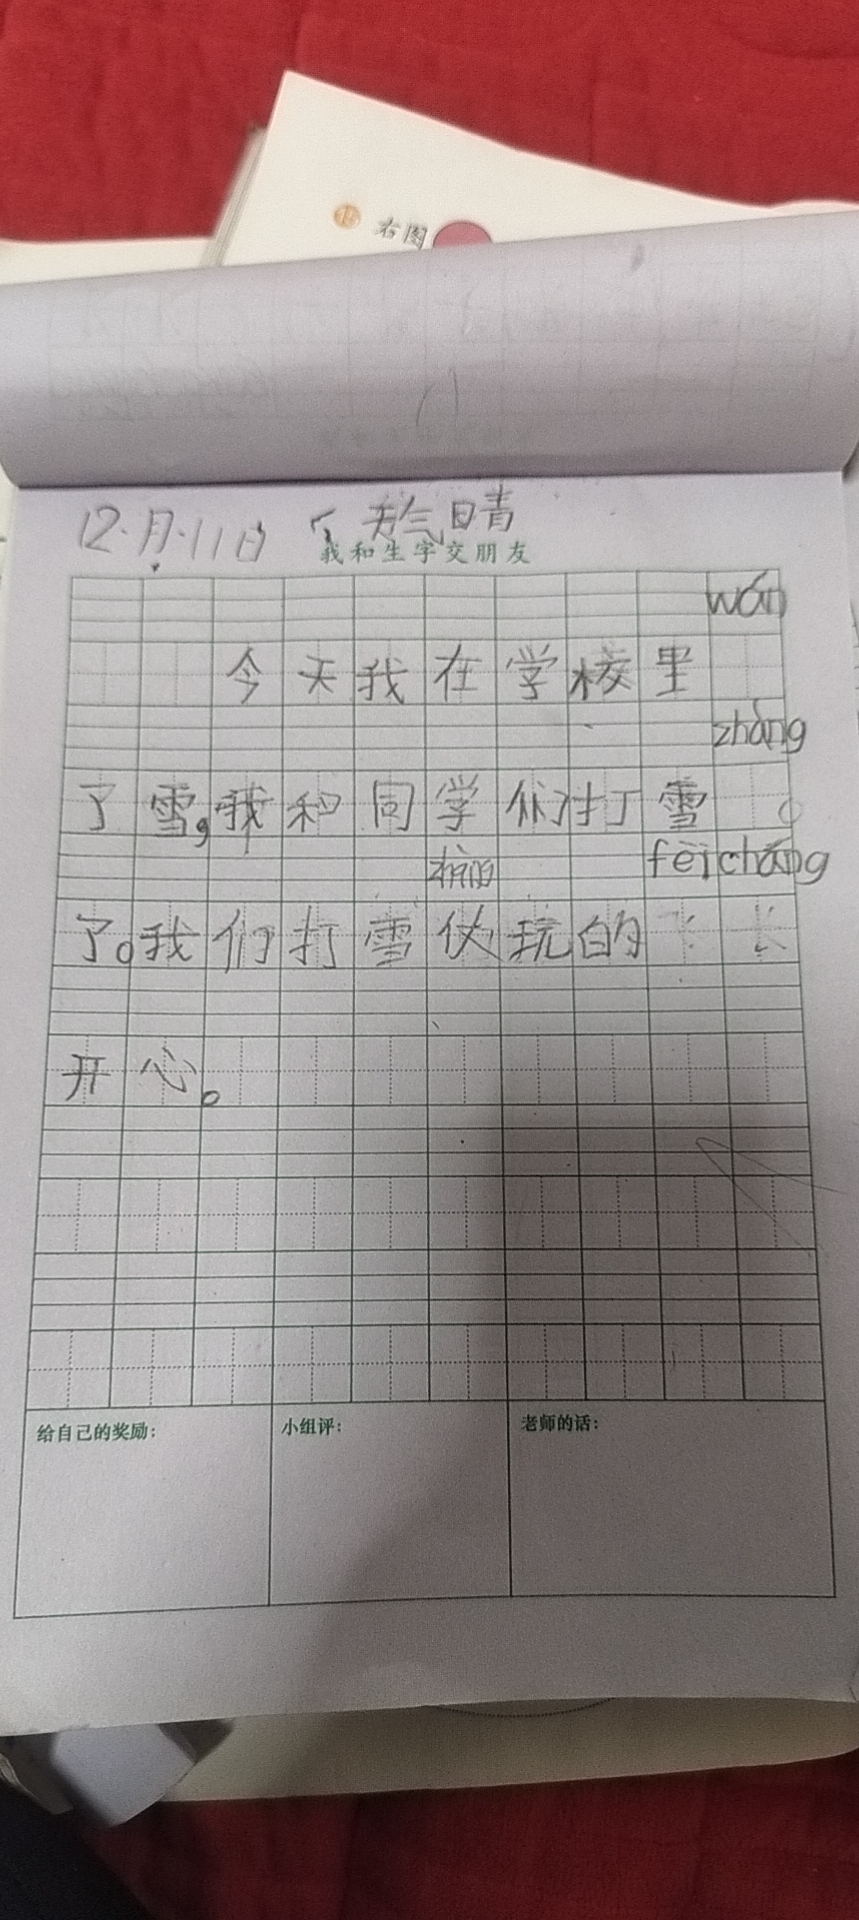 右图
12.月.11日 天气日青
我和生字交朋友
wán
今天我在学校里
zhàng
了雪,我和同学们打雪。
fēi cháng
了。我们打雪伙玩的飞长
开心。
给自己的奖励: 小组评: 老师的话: